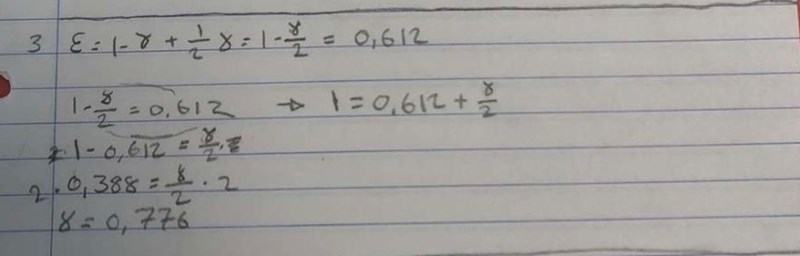 3 ε = 1 - γ + 1/2 γ = 1 - γ/2 = 0,612
1 - γ/2 = 0,612 → 1 = 0,612 + γ/2
1 - 0,612 = γ/2
2 · 0,388 = γ/2 · 2
γ = 0,776